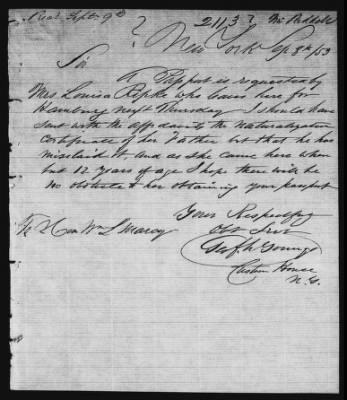 Recd Sept. 9th
2113? Mr Reddall
?
New York Sep 8th /53
Sir
A Passport is requested by
Mrs Louisa Ropke who leaves here for
Hamburg next Thursday I should have
sent with the affidavits the Naturalization
Certificate of her Father but that he has
mislaid it, and as she came here when
but 12 Years of age I hope there will be
no obstacle to her obtaining your passport
Yours Respectfy
Obt Servt
Young
Custom House
N.Y.
To Hon Wm L Marcy